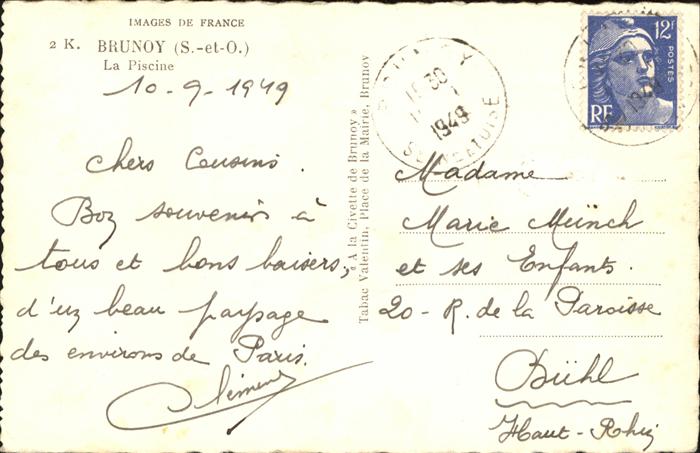 IMAGES DE FRANCE
2 K. BRUNOY (S.-et-O.)
La Piscine
10-9-1949
Chers Cousins.
Boz souvenir à
tous et bons baisers,
d'uz beau paysage
des environs de Paris.
Clément
« A la Civette de Brunoy »
Tabac Valentin, Place de la Mairie, Brunoy
BRUNOY
1949
12F
POSTES
RF
Madame
Marie Münch
et ses Enfants.
20- R. de la Paroisse
Bühl
Haut-Rhin